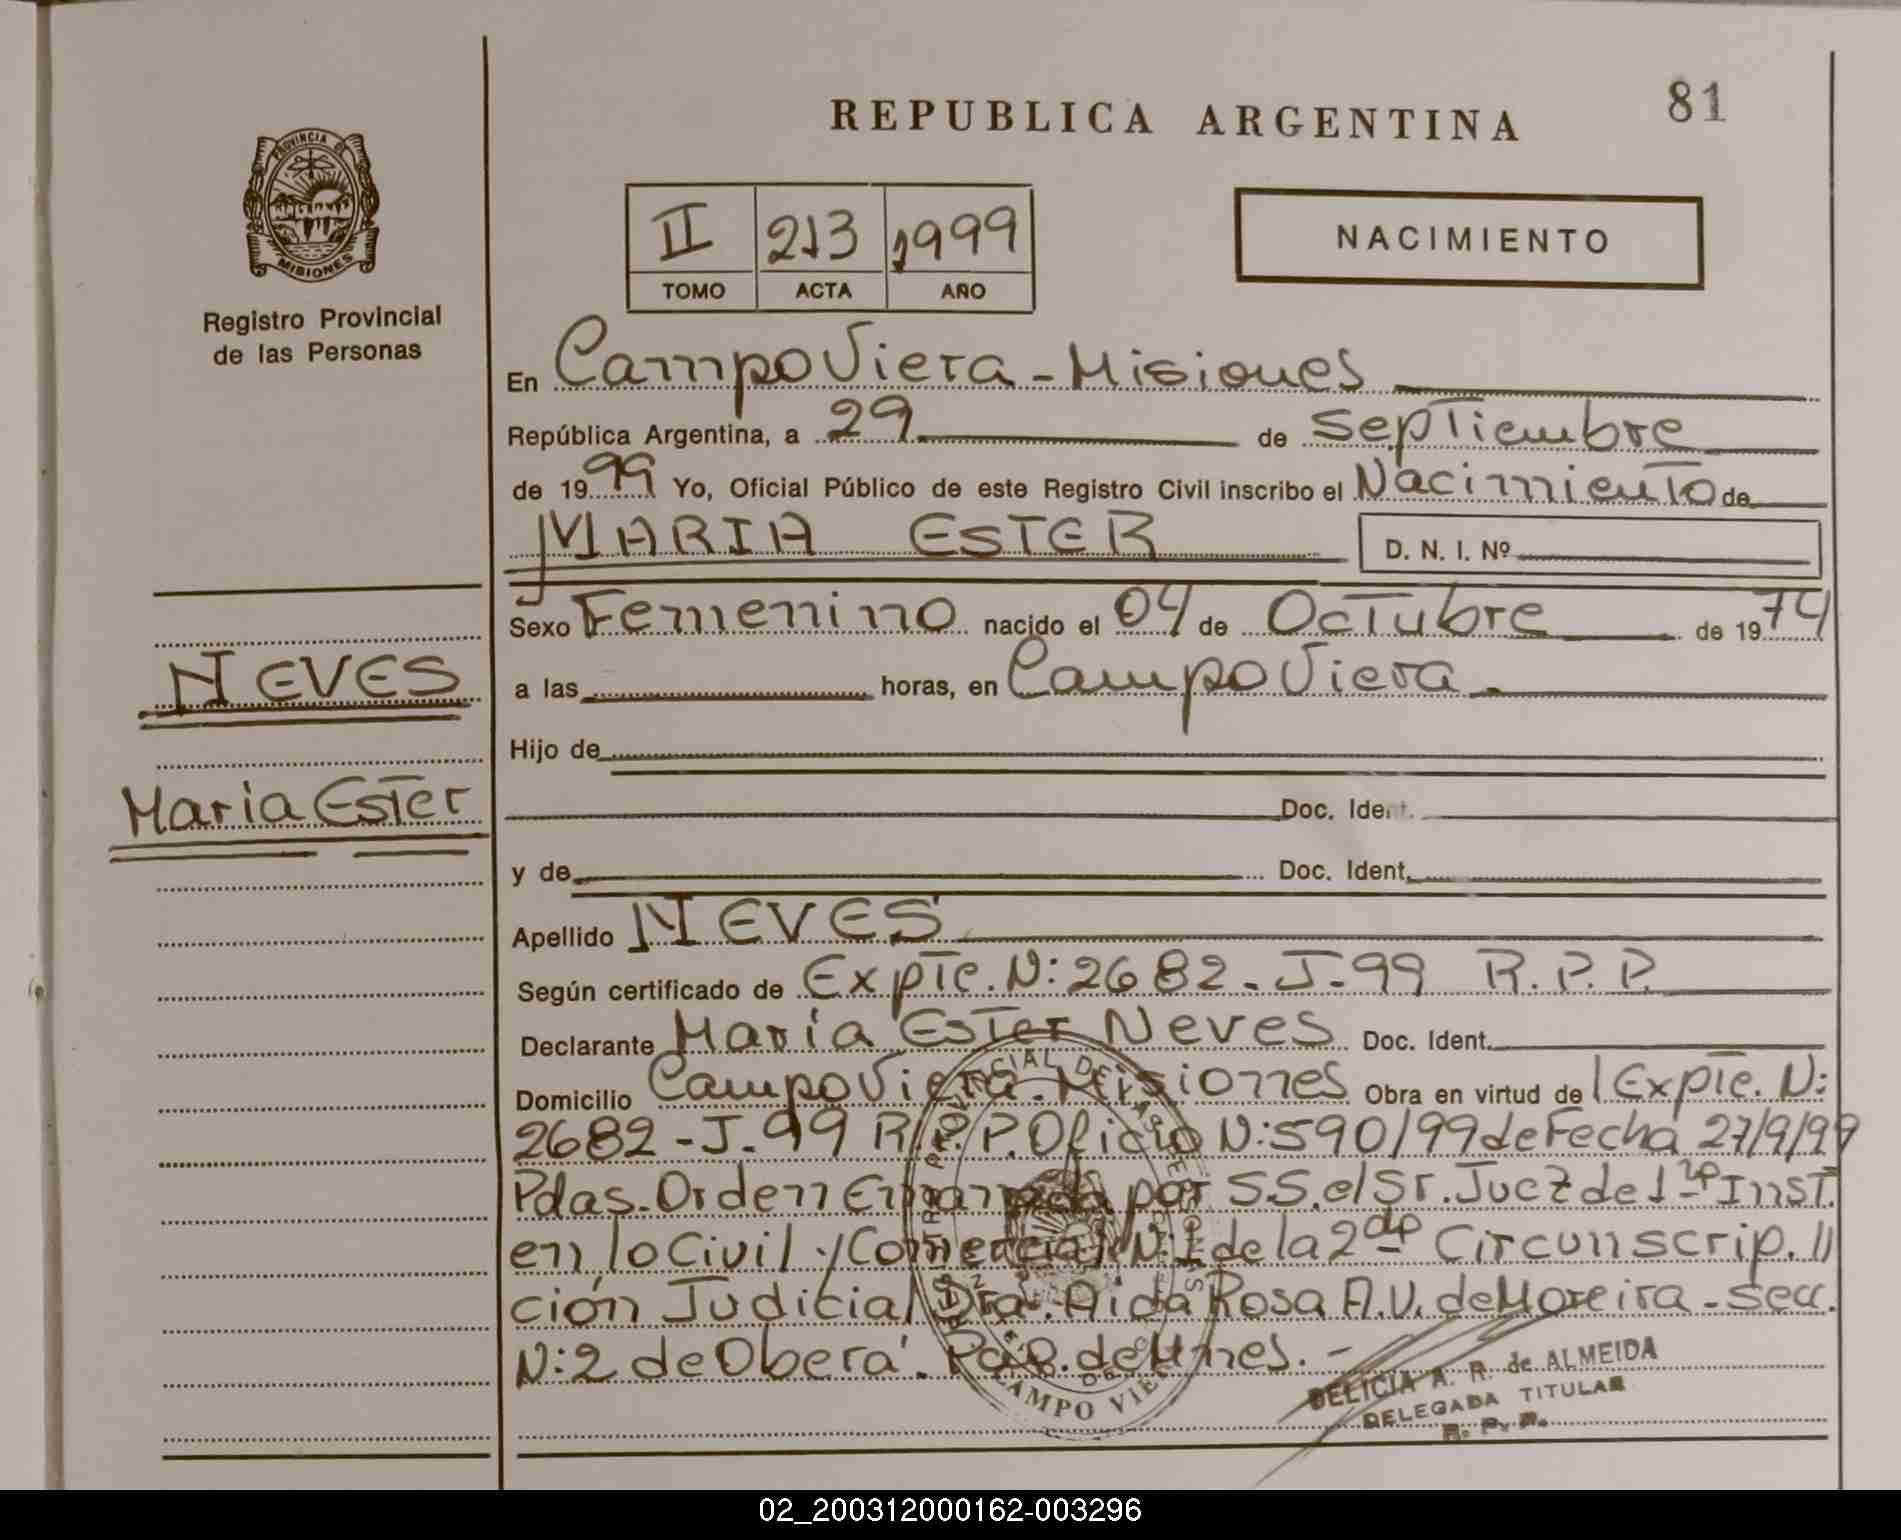 81
REPUBLICA ARGENTINA
PROVINCIA DE
MISIONES
Registro Provincial
de las Personas
II 213 1999
TOMO ACTA AÑO
NACIMIENTO
En Campo Viera - Misiones
República Argentina, a 29 de Septiembre
de 1999 Yo, Oficial Público de este Registro Civil inscribo el Nacimiento de
MARIA ESTER D. N. I. Nº
Sexo Femenino nacido el 04 de Octubre de 1974
NEVES
a las horas, en Campo Viera
Hijo de
Maria Ester
Doc. Ident.
y de Doc. Ident.
Apellido NEVES
Según certificado de Expte. N: 2682 - J - 99 R. P. P.
Declarante Maria Ester Neves Doc. Ident.
Domicilio Campo Viera. Misiones Obra en virtud de Expte. N:
2682 - J. 99 R. P. P. Oficio N: 590/99 de Fecha 27/9/99
Pdas. Orden Emanada por S.S. el Sr. Juez de 1ra Inst.
en lo Civil y Comercial N: 1 de la 2da Circunscrip.
ción Judicial Dra. Aida Rosa A. V. de Moreira - Secc.
N: 2 de Oberá. de Mnes. -
CAMPO VIE
DELICIA A. R. de ALMEIDA
DELEGADA TITULAR
R. P. P.
02_200312000162-003296